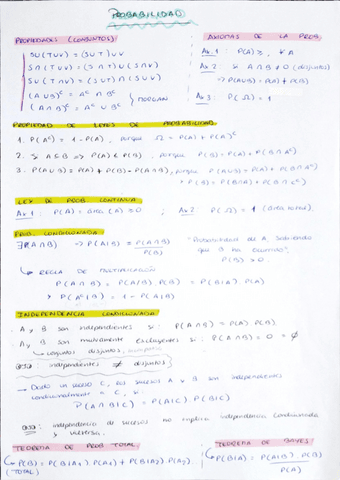 PROBABILIDAD
PROPIEDADES (CONJUNTOS)
SU(TUV) = (SUT)UV
S∩(TUV) = (S∩T)U(S∩V)
SU(T∩V) = (SUT)∩(SUV)
(AUB)ᶜ = Aᶜ∩Bᶜ
(A∩B)ᶜ = AᶜUBᶜ
MORGAN
AXIOMAS DE LA PROB.
Ax.1: P(A)≥, ∀A
Ax.2: Si A∩B≠0 (disjuntos)
→ P(AUB)=P(A)+P(B)
Ax.3: P(Ω)=1
PROPIEDAD DE LEYES DE PROBABILIDAD.
1. P(Aᶜ) = 1-P(A), porque Ω = P(A)+P(A)ᶜ
2. Si A⊆B ⇒ P(A)≤P(B), porque P(B)=P(A)+P(B∩Aᶜ)
3. P(AUB) = P(A)+P(B)-P(A∩B), porque P(AUB)=P(A)+P(B∩Aᶜ)
* P(B)= P(B∩A)+P(B∩Aᶜ)
LEY DE PROB CONTINUA
Ax.1: P(A) = área(A) ≥0 ; Ax.2: P(Ω)=1 (área total).
PROB. CONDICIONADA
∃P(A∩B) → P(A|B) = P(A∩B)/P(B)
"Probabilidad de A, sabiendo que B ha ocurrido".
P(B) > 0
↳ REGLA DE MULTIPLICACIÓN
P(A∩B) = P(A|B).P(B) = P(B|A).P(A)
> P(Aᶜ|B) = 1-P(A|B)
INDEPENDENCIA CONDICIONADA
· A y B son independientes si: P(A∩B) = P(A).P(B)
· A y B son mutuamente excluyentes si: P(A∩B) = 0 = ∅
↳ conjuntos disjuntos,
OJO: independientes ≠ disjuntos
→ Dado un suceso C, los sucesos A y B son independientes
condicionalmente a C, si:
P(A∩B|C) = P(A|C).P(B|C)
OJO: independencia de sucesos no implica independencia condicionada
y viceversa.
TEOREMA DE PROB TOTAL
↳ P(B) = P(B|A1).P(A1)+P(B|A2).P(A2).
(TOTAL)
TEOREMA DE BAYES
↳ P(B|A) = P(A|B).P(B)/P(A)